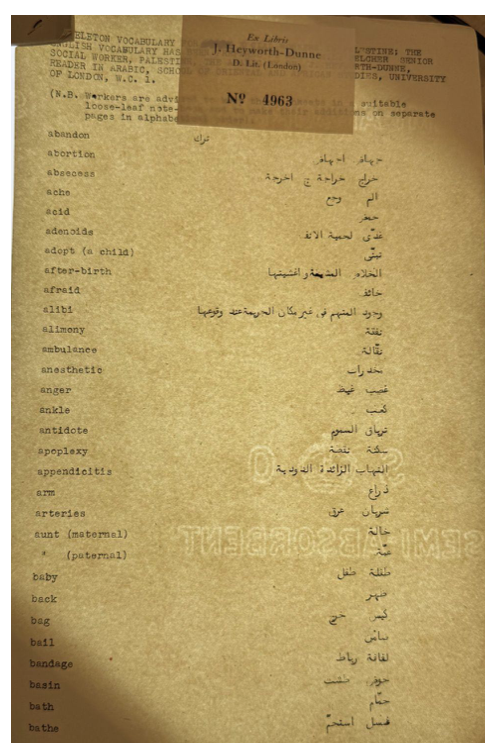 Ex Libris
J. Heyworth-Dunne
D. Lit. (London)
Nº 4963
SKELETON VOCABULARY PALESTINE; THE
ENGLISH VOCABULARY HAS BELCHER SENIOR
SOCIAL WORKER, PALESTINE, HEYWORTH-DUNNE,
READER IN ARABIC, SCHOOL OF ORIENTAL AND AFRICAN STUDIES, UNIVERSITY
OF LONDON, W.C. 1.
(N.B. Workers are advised in a suitable
loose-leaf note- make their additions on separate
pages in alphabetical
abandon ترك
abortion جهاض اجهاض
absecess خراج خراجة ج اخرجة
ache الم وجع
acid حمض
adenoids غدّى لحمية الانف
adopt (a child) تبنّى
after-birth الخلاص المشيمة واغشيتها
afraid خائف
alibi وجود المتهم فى غير مكان الجريمة عند وقوعها
alimony نفقة
ambulance نقّالة
anesthetic مخدرات
anger غضب غيظ
ankle كعب
antidote ترياق السموم
apoplexy سكتة نقطة
appendicitis التهاب الزائدة الدودية
arm ذراع
arteries شريان عرق
aunt (maternal) خالة
" (paternal) عمّة
baby طفلة طفل
back ظهر
bag كيس خرج
bail
bandage لفافة رباط
basin حوض طشت
bath حمّام
bathe غسل استحمّ
SEMI ABSORBENT